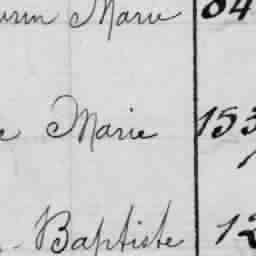 Marie 04
Marie 153
Baptiste 12